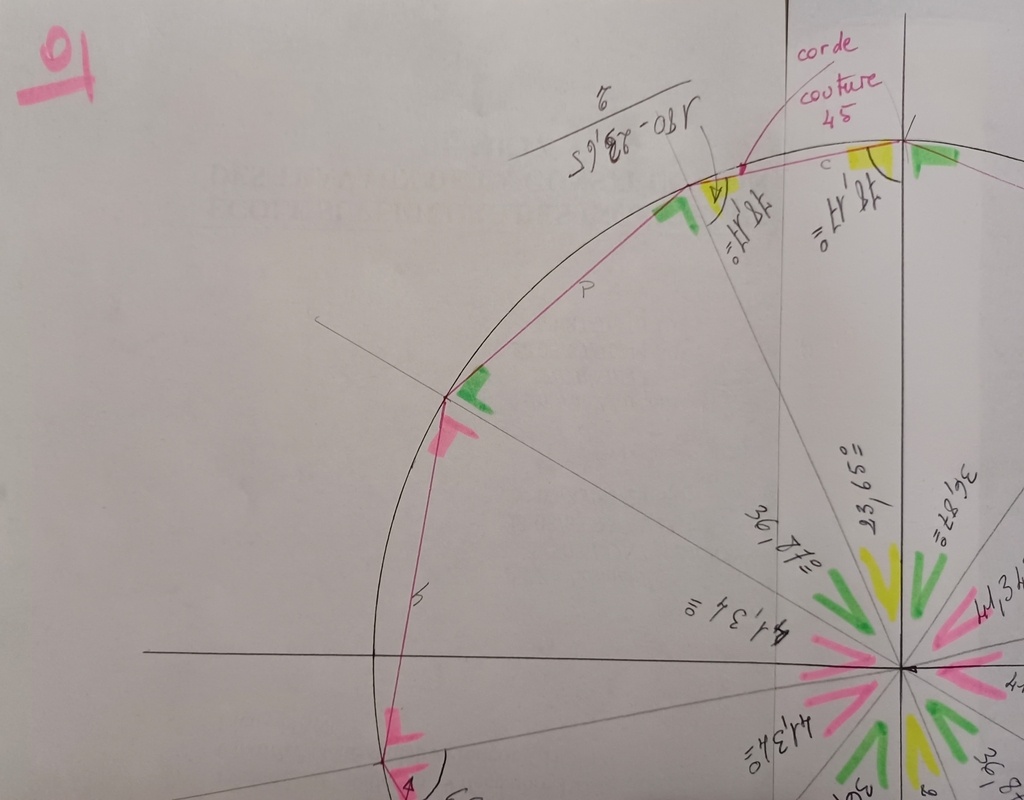 10
corde
couture
45
180 - 23,65
2
c
78,17°
78,17°
P
23,65°
36,87°
36,87°
41,34°
41,34°